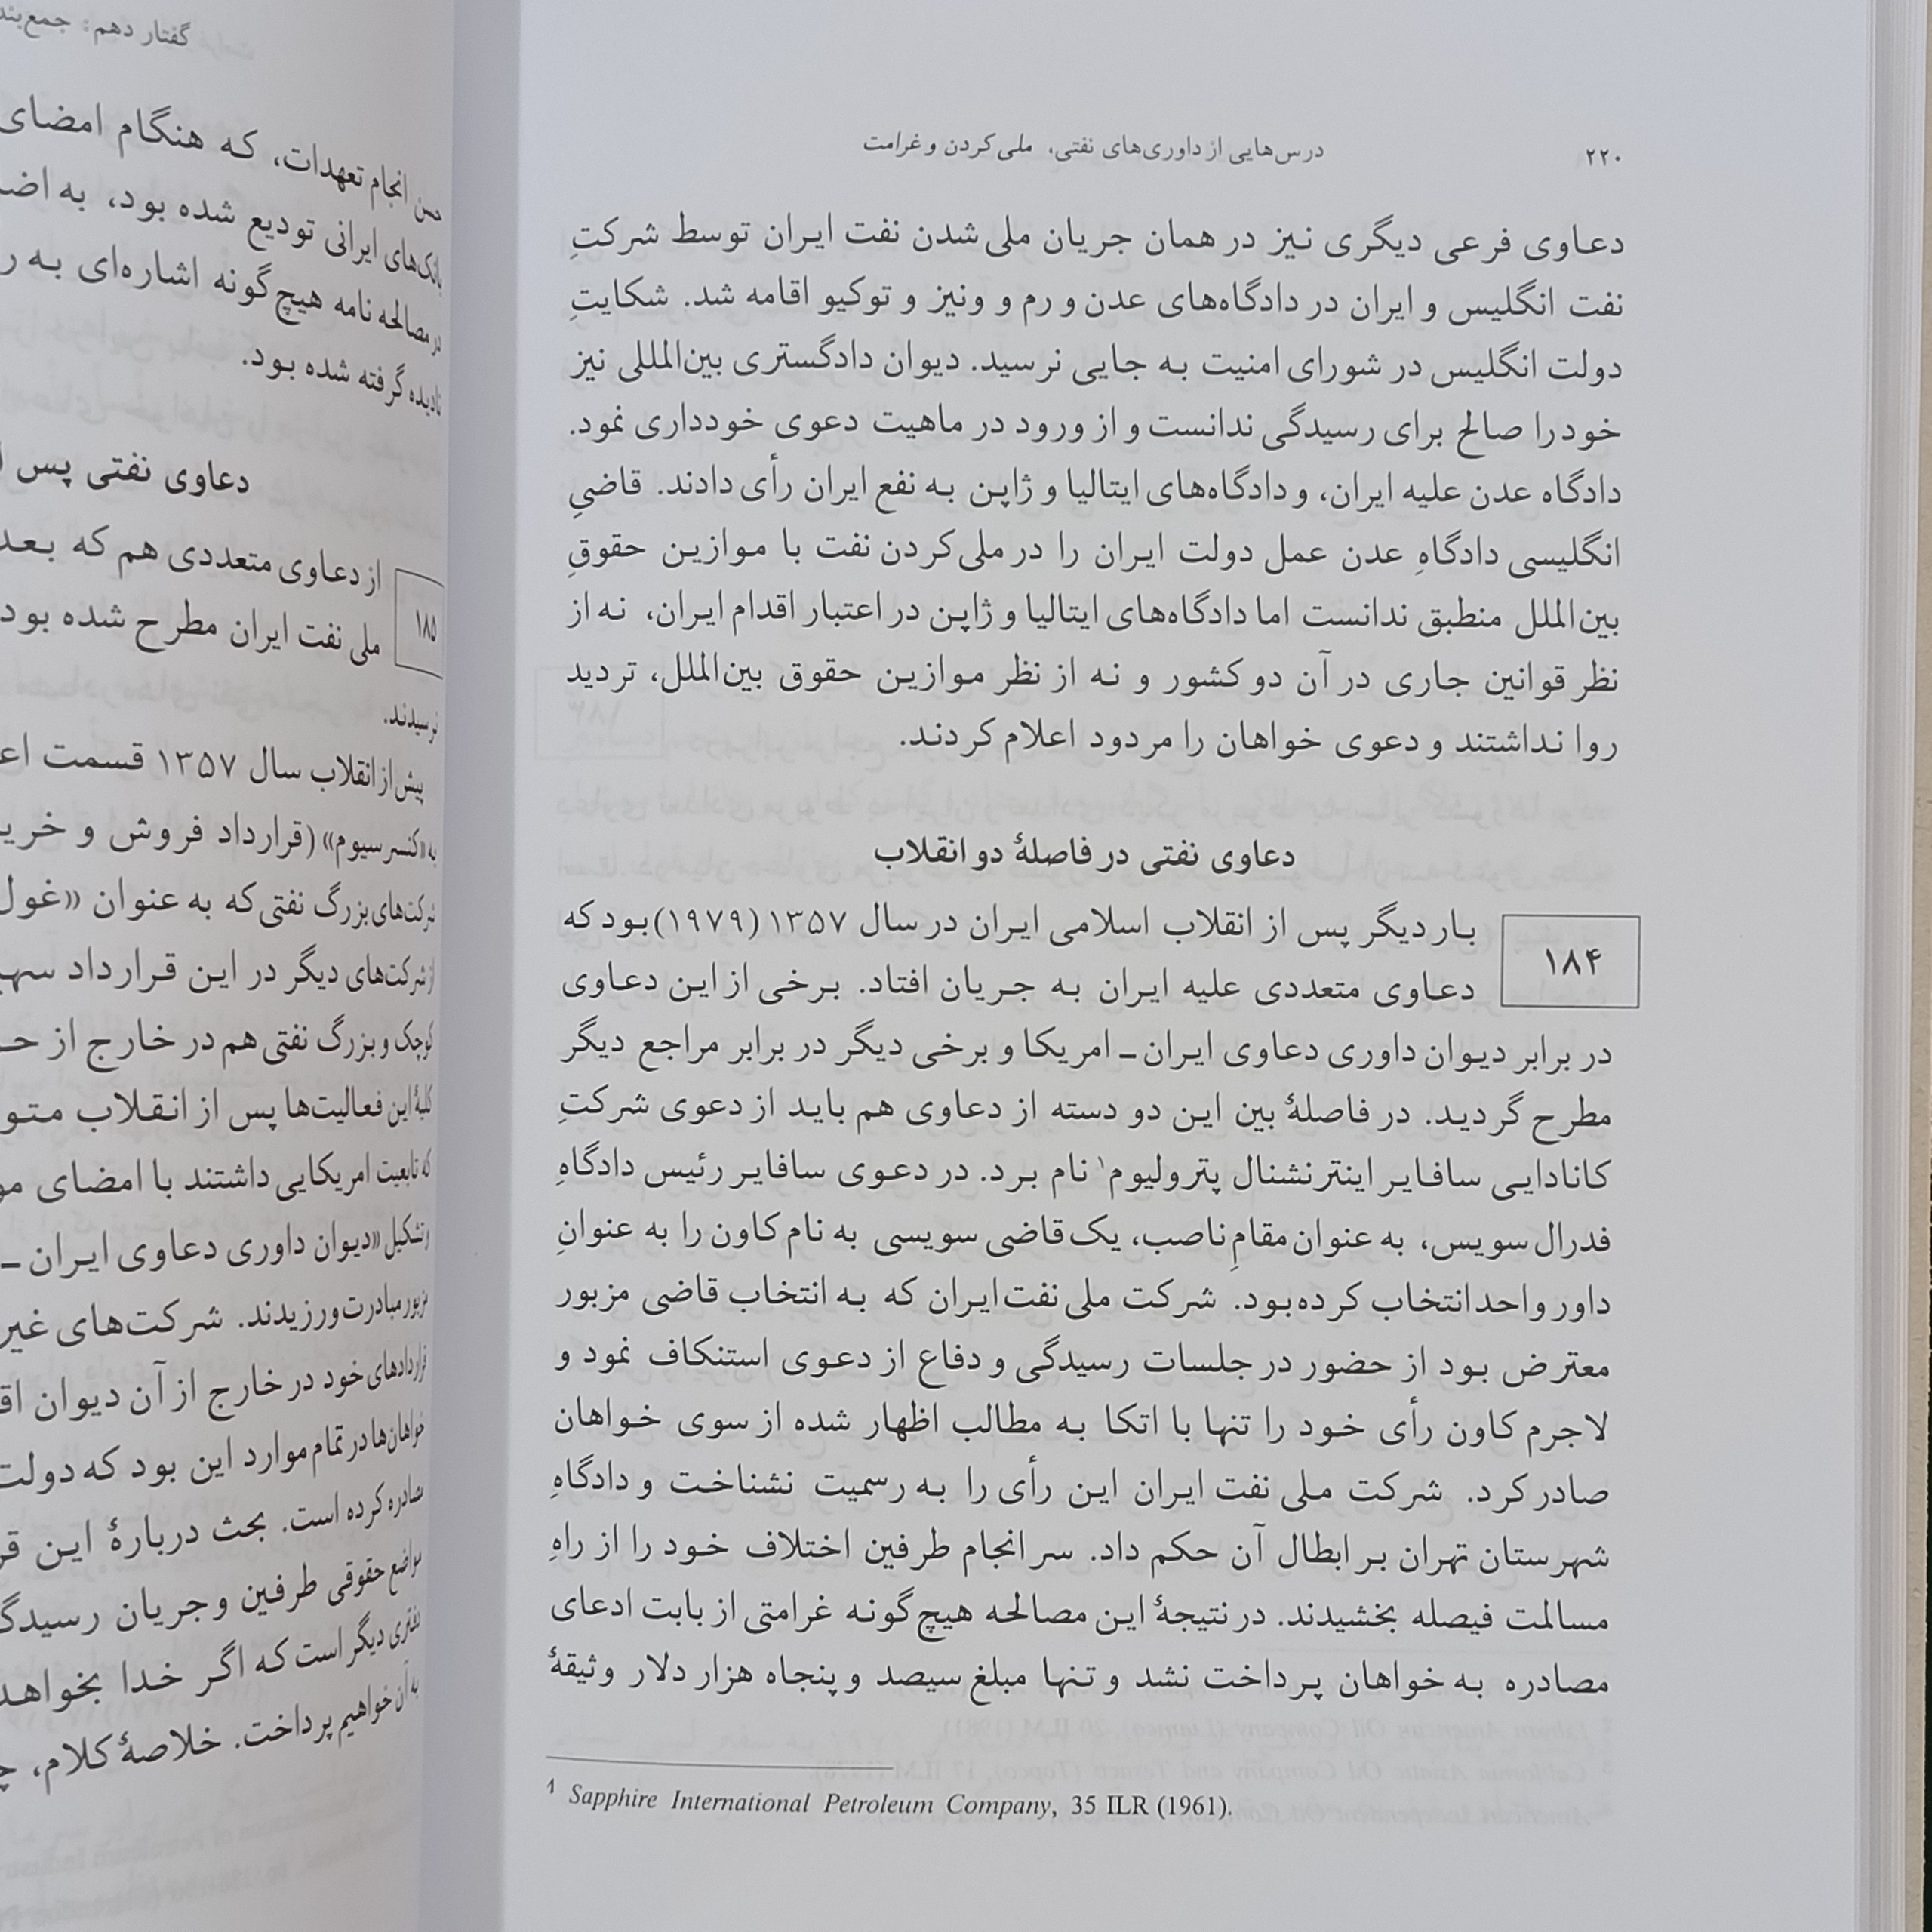 ۲۲۰
درس‌هایی از داوری‌های نفتی، ملی‌کردن و غرامت
دعاوی فرعی دیگری نیز در همان جریان ملی‌شدن نفت ایران توسط شرکتِ
نفت انگلیس و ایران در دادگاه‌های عدن و رم و ونیز و توکیو اقامه شد. شکایتِ
دولت انگلیس در شورای امنیت به جایی نرسید. دیوان دادگستری بین‌المللی نیز
خود را صالح برای رسیدگی ندانست و از ورود در ماهیت دعوی خودداری نمود.
دادگاه عدن علیه ایران، و دادگاه‌های ایتالیا و ژاپن به نفع ایران رأی دادند. قاضیِ
انگلیسی دادگاهِ عدن عمل دولت ایران را در ملی‌کردن نفت با موازین حقوقِ
بین‌الملل منطبق ندانست اما دادگاه‌های ایتالیا و ژاپن در اعتبار اقدام ایران، نه از
نظر قوانین جاری در آن دو کشور و نه از نظر موازین حقوق بین‌الملل، تردید
روا نداشتند و دعوی خواهان را مردود اعلام کردند.
دعاوی نفتی در فاصلهٔ دو انقلاب
۱۸۴
بار دیگر پس از انقلاب اسلامی ایران در سال ۱۳۵۷ (۱۹۷۹) بود که
دعاوی متعددی علیه ایران به جریان افتاد. برخی از این دعاوی
در برابر دیوان داوری دعاوی ایران ـ امریکا و برخی دیگر در برابر مراجع دیگر
مطرح گردید. در فاصلهٔ بین این دو دسته از دعاوی هم باید از دعوی شرکتِ
کانادایی سافایر اینترنشنال پترولیوم۱ نام برد. در دعوی سافایر رئیس دادگاهِ
فدرال سویس، به عنوان مقامِ ناصب، یک قاضی سویسی به نام کاون را به عنوانِ
داور واحد انتخاب کرده بود. شرکت ملی نفت ایران که به انتخاب قاضی مزبور
معترض بود از حضور در جلسات رسیدگی و دفاع از دعوی استنکاف نمود و
لاجرم کاون رأی خود را تنها با اتکا به مطالب اظهار شده از سوی خواهان
صادر کرد. شرکت ملی نفت ایران این رأی را به رسمیت نشناخت و دادگاهِ
شهرستان تهران بر ابطال آن حکم داد. سرانجام طرفین اختلاف خود را از راهِ
مسالمت فیصله بخشیدند. در نتیجهٔ این مصالحه هیچ‌گونه غرامتی از بابت ادعای
مصادره به خواهان پرداخت نشد و تنها مبلغ سیصد و پنجاه هزار دلار وثیقهٔ
1 Sapphire International Petroleum Company, 35 ILR (1961).
گفتار دهم:
حسن انجام تعهدات، که هنگام امضای
بانک‌های ایرانی تودیع شده بود، به
در مصالحه نامه هیچ‌گونه اشاره‌ای به
نادیده گرفته شده بود.
دعاوی نفتی پس
۱۸۵
از دعاوی متعددی هم که بعد
ملی نفت ایران مطرح شده بود
نرسیدند.
پیش از انقلاب سال ۱۳۵۷ قسمت
به «کنسرسیوم» (قرارداد فروش و
شرکت‌های بزرگ نفتی که به عنوان «غول
از شرکت‌های دیگر در این قرارداد
کوچک و بزرگ نفتی هم در خارج از
کلیهٔ این فعالیت‌ها پس از انقلاب
که تابعیت امریکایی داشتند با امضای
و تشکیل «دیوان داوری دعاوی ایران ـ
مزبور مبادرت ورزیدند. شرکت‌های غیر
قراردادهای خود در خارج از آن دیوان
خواهان‌ها در تمام موارد این بود که دولت
مصادره کرده است. بحث دربارهٔ این
مواضع حقوقی طرفین و جریان
دفتری دیگر است که اگر خدا بخواهد
به آن خواهیم پرداخت. خلاصهٔ کلام،